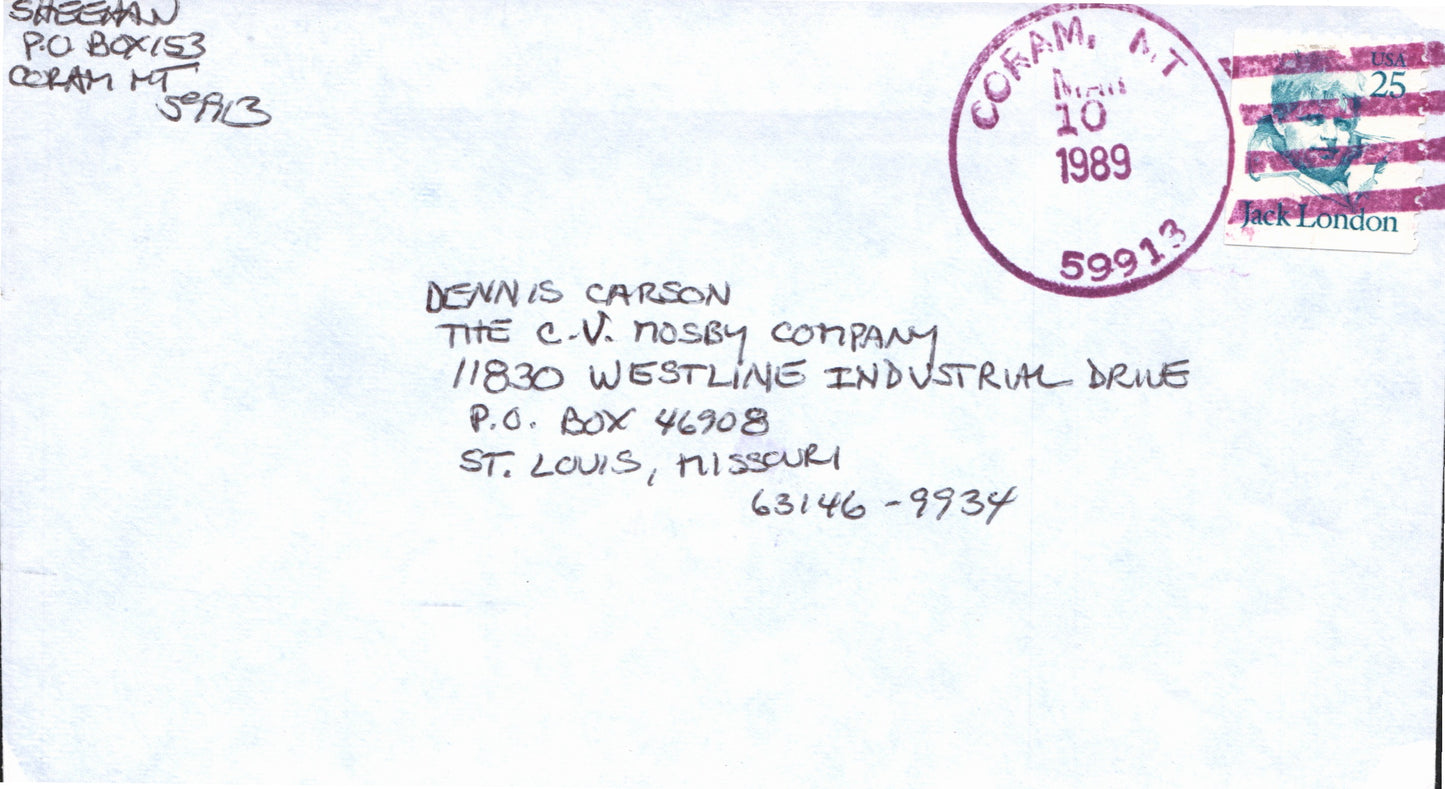 SHEEHAN
P.O. BOX 153
CORAM MT
59913
CORAM, MT
MAR
10
1989
59913
USA
25
Jack London
DENNIS CARSON
THE C.V. MOSBY COMPANY
11830 WESTLINE INDUSTRIAL DRIVE
P.O. BOX 46908
ST. LOUIS, MISSOURI
63146-9934